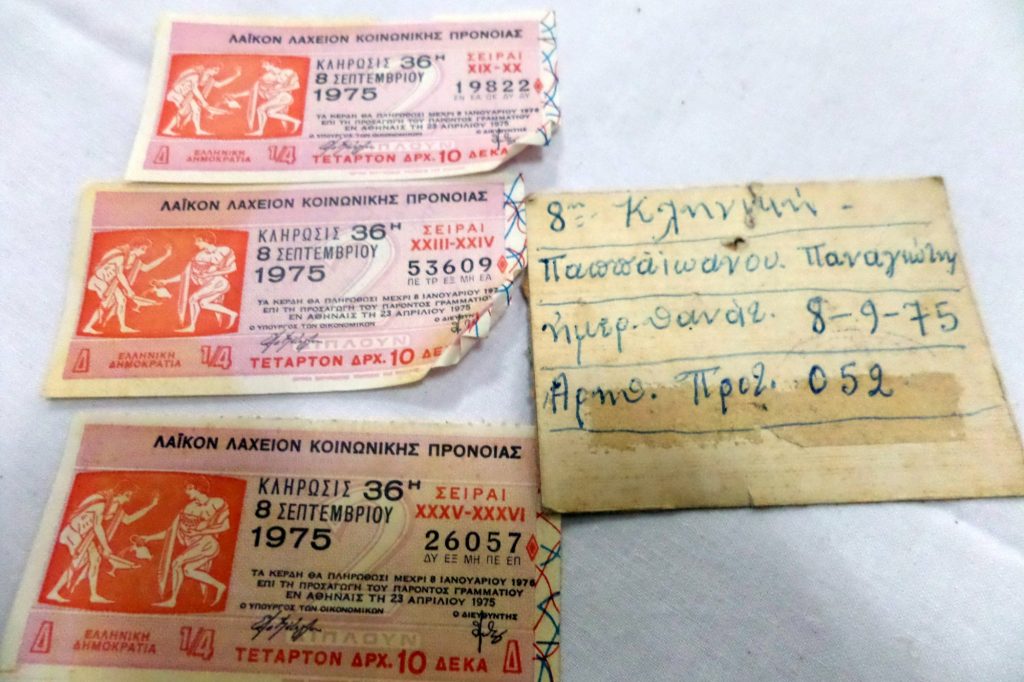 ΛΑΪΚΟΝ ΛΑΧΕΙΟΝ ΚΟΙΝΩΝΙΚΗΣ ΠΡΟΝΟΙΑΣ
ΚΛΗΡΩΣΙΣ 36Η
ΣΕΙΡΑΙ
XIX-XX
8 ΣΕΠΤΕΜΒΡΙΟΥ
1975
19822
ΤΑ ΚΕΡΔΗ ΘΑ ΠΛΗΡΩΘΩΣΙ ΜΕΧΡΙ 8 ΙΑΝΟΥΑΡΙΟΥ 1976
ΕΠΙ ΤΗ ΠΡΟΣΑΓΩΓΗ ΤΟΥ ΠΑΡΟΝΤΟΣ ΓΡΑΜΜΑΤΙΟΥ
ΕΝ ΑΘΗΝΑΙΣ ΤΗ 23 ΑΠΡΙΛΙΟΥ 1975
Ο ΥΠΟΥΡΓΟΣ ΤΩΝ ΟΙΚΟΝΟΜΙΚΩΝ
Ο ΔΙΕΥΘΥΝΤΗΣ
Δ ΕΛΛΗΝΙΚΗ
ΔΗΜΟΚΡΑΤΙΑ
1/4
ΤΕΤΑΡΤΟΝ ΔΡΧ. 10 ΔΕΚΑ
ΛΑΪΚΟΝ ΛΑΧΕΙΟΝ ΚΟΙΝΩΝΙΚΗΣ ΠΡΟΝΟΙΑΣ
ΚΛΗΡΩΣΙΣ 36Η
ΣΕΙΡΑΙ
XXIII-XXIV
8 ΣΕΠΤΕΜΒΡΙΟΥ
1975
53609
ΠΕ ΤΡ ΕΞ ΜΗ ΕΑ
ΤΑ ΚΕΡΔΗ ΘΑ ΠΛΗΡΩΘΩΣΙ ΜΕΧΡΙ 8 ΙΑΝΟΥΑΡΙΟΥ 197
ΕΠΙ ΤΗ ΠΡΟΣΑΓΩΓΗ ΤΟΥ ΠΑΡΟΝΤΟΣ ΓΡΑΜΜΑΤΙΟΥ
ΕΝ ΑΘΗΝΑΙΣ ΤΗ 23 ΑΠΡΙΛΙΟΥ 1975
Ο ΥΠΟΥΡΓΟΣ ΤΩΝ ΟΙΚΟΝΟΜΙΚΩΝ
Ο ΔΙΕΥΘΥΝΤΗΣ
Δ ΕΛΛΗΝΙΚΗ
ΔΗΜΟΚΡΑΤΙΑ
1/4
ΤΕΤΑΡΤΟΝ ΔΡΧ. 10 ΔΕ
ΛΑΪΚΟΝ ΛΑΧΕΙΟΝ ΚΟΙΝΩΝΙΚΗΣ ΠΡΟΝΟΙΑΣ
ΚΛΗΡΩΣΙΣ 36Η
ΣΕΙΡΑΙ
XXXV-XXXVI
8 ΣΕΠΤΕΜΒΡΙΟΥ
1975
26057
ΔΥ ΕΞ ΜΗ ΠΕ ΕΠ
ΤΑ ΚΕΡΔΗ ΘΑ ΠΛΗΡΩΘΩΣΙ ΜΕΧΡΙ 8 ΙΑΝΟΥΑΡΙΟΥ 1976
ΕΠΙ ΤΗ ΠΡΟΣΑΓΩΓΗ ΤΟΥ ΠΑΡΟΝΤΟΣ ΓΡΑΜΜΑΤΙΟΥ
ΕΝ ΑΘΗΝΑΙΣ ΤΗ 23 ΑΠΡΙΛΙΟΥ 1975
Ο ΥΠΟΥΡΓΟΣ ΤΩΝ ΟΙΚΟΝΟΜΙΚΩΝ
Ο ΔΙΕΥΘΥΝΤΗΣ
Δ ΕΛΛΗΝΙΚΗ
ΔΗΜΟΚΡΑΤΙΑ
1/4
ΤΕΤΑΡΤΟΝ ΔΡΧ. 10 ΔΕΚΑ Δ
8η Κληνική -
Παππαϊωάνου. Παναγιώτης
ἡμερ. θανάτ. 8-9-75
Αρηθ. Πρωτ. 052